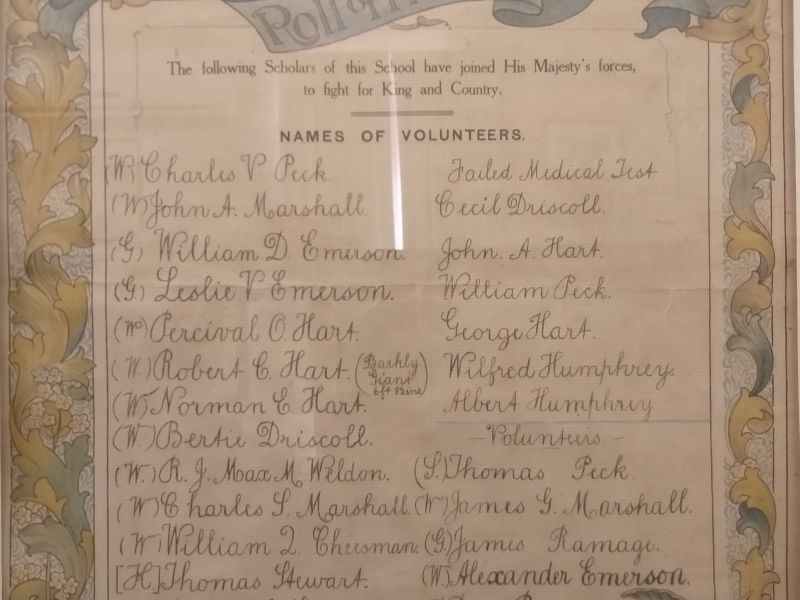 Roll of
The following Scholars of this School have joined His Majesty's forces,
to fight for King and Country.
NAMES OF VOLUNTEERS.
(W) Charles V Peck.
(W) John A. Marshall.
(G) William D. Emerson.
(G) Leslie V Emerson.
(W) Percival O. Hart.
(W.) Robert C. Hart. (Barkly
Giant
6ft 8ins)
(W) Norman C. Hart.
(W.) Bertie Driscoll.
(W.) R. J. Max M. Weldon.
(W) Charles S. Marshall.
(W) William L. Cheesman.
[H] Thomas Stewart.
Failed Medical Test
Cecil Driscoll.
John. A. Hart.
William Peck.
George Hart.
Wilfred Humphrey.
Albert Humphrey.
- Volunteers. -
(S.) Thomas Peck.
(W) James G. Marshall.
(G) James Ramage.
(W.) Alexander Emerson.